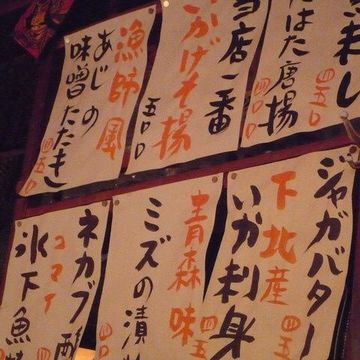 刺し
四五〇
たはた唐揚
四〇〇
当店一番
いかげそ揚
五〇〇
漁師風
あじの
味噌たたき
四五〇
ジャガバター
下北産
いか刺身
四五
青森味
ミズの漬
ネカブ酢
コマイ
氷下魚